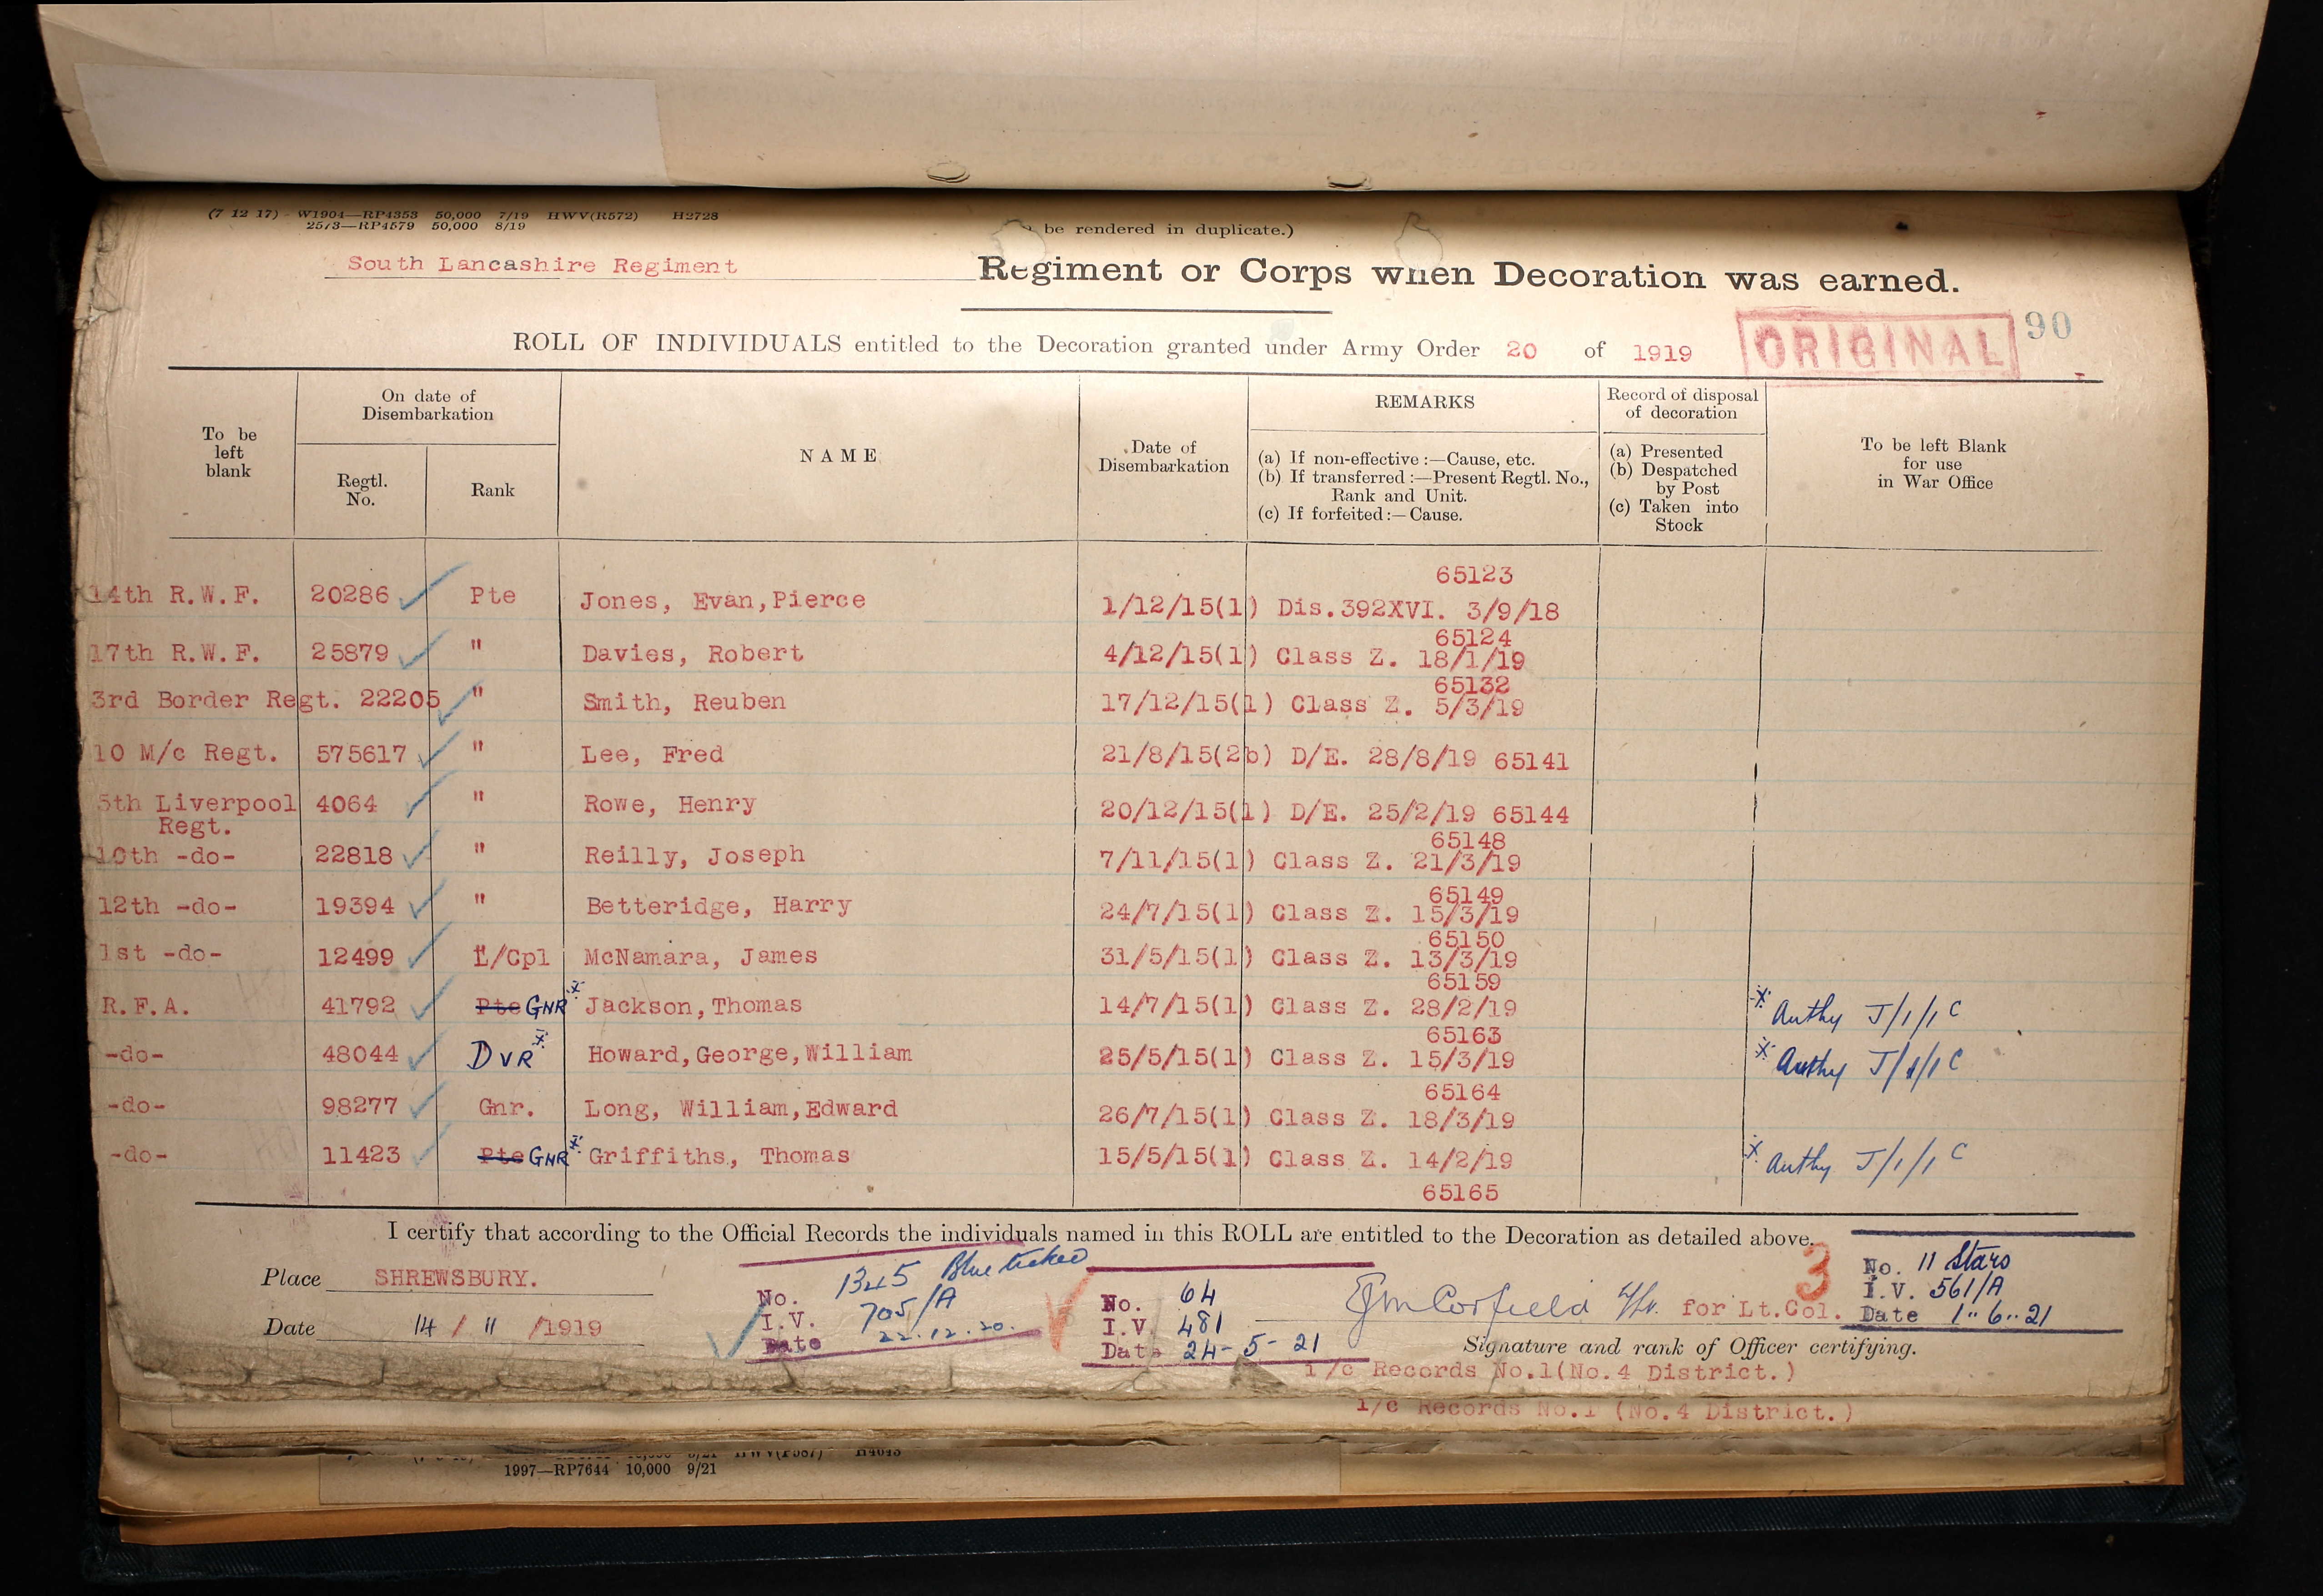 (7 12 17) W1904—RP4353 50,000 7/19 HWV(R572) H2728
2573—RP4579 50,000 8/19
be rendered in duplicate.)
South Lancashire Regiment Regiment or Corps when Decoration was earned.
ROLL OF INDIVIDUALS entitled to the Decoration granted under Army Order 20 of 1919
ORIGINAL
90
To be left blank
On date of Disembarkation
Regtl. No.
Rank
NAME
Date of Disembarkation
REMARKS
(a) If non-effective :—Cause, etc.
(b) If transferred :—Present Regtl. No., Rank and Unit.
(c) If forfeited :—Cause.
Record of disposal of decoration
(a) Presented
(b) Despatched by Post
(c) Taken into Stock
To be left Blank for use in War Office
65123
14th R.W.F. 20286 Pte Jones, Evan,Pierce 1/12/15(1) Dis.392XVI. 3/9/18
65124
17th R.W.F. 25879 " Davies, Robert 4/12/15(1) Class Z. 18/1/19
65132
3rd Border Regt. 22205 " Smith, Reuben 17/12/15(1) Class Z. 5/3/19
10 M/c Regt. 575617 " Lee, Fred 21/8/15(2b) D/E. 28/8/19 65141
5th Liverpool Regt. 4064 " Rowe, Henry 20/12/15(1) D/E. 25/2/19 65144
65148
10th -do- 22818 " Reilly, Joseph 7/11/15(1) Class Z. 21/3/19
65149
12th -do- 19394 " Betteridge, Harry 24/7/15(1) Class Z. 15/3/19
65150
1st -do- 12499 L/Cpl McNamara, James 31/5/15(1) Class Z. 13/3/19
65159
R.F.A. 41792 Pte GNR Jackson,Thomas 14/7/15(1) Class Z. 28/2/19 Authy J/1/1 C
65163
-do- 48044 DVR Howard,George,William 25/5/15(1) Class Z. 15/3/19 Authy J/1/1 C
65164
-do- 98277 Gnr. Long, William,Edward 26/7/15(1) Class Z. 18/3/19
-do- 11423 Pte GNR Griffiths, Thomas 15/5/15(1) Class Z. 14/2/19 Authy J/1/1 C
65165
I certify that according to the Official Records the individuals named in this ROLL are entitled to the Decoration as detailed above.
Place SHREWSBURY.
Date 14 / 11 /1919
No. 1345 Blue ticked
I.V. 705/A
Date 22.12.20.
No. 64
I.V. 481
Date 24-5-21
3
No. 11 Stars
I.V. 561/A
Date 1..6..21
Corfield for Lt.Col.
Signature and rank of Officer certifying.
i/c Records No.1(No.4 District.)
i/c Records No.1 (No.4 District.)
1997—RP7644 10,000 9/21